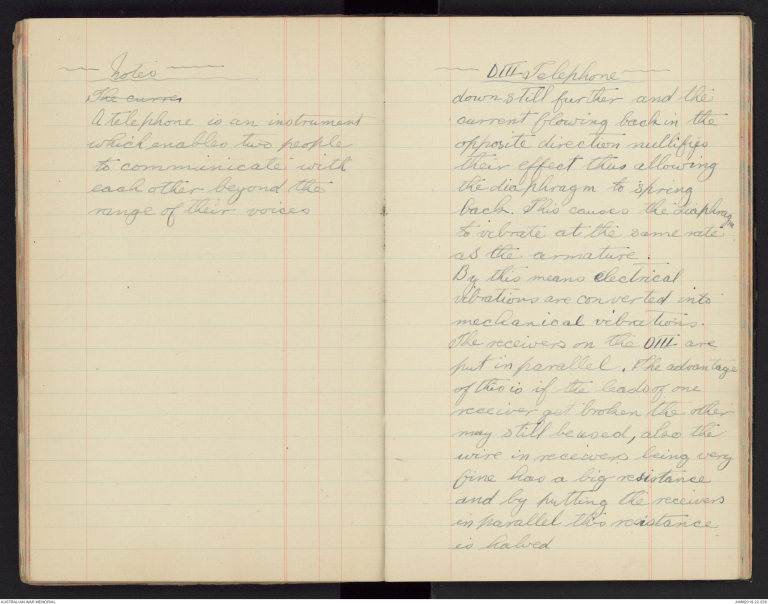 Notes
The curren
A telephone is an instrument
which enables two people
to communicate with
each other beyond the
range of their voices
DIII Telephone
down still further and the
current flowing back in the
opposite direction nullifies
their effect thus allowing
the diaphragm to spring
back. This causes the diaphragm
to vibrate at the same rate
as the armature.
By this means electrical
vibrations are converted into
mechanical vibrations.
The receivers on the DIII are
put in parallel. The advantage
of this is if the leads of one
receiver get broken the other
may still be used, also the
wire in receivers being very
fine has a big resistance
and by putting the receivers
in parallel this resistance
is halved
AUSTRALIAN WAR MEMORIAL